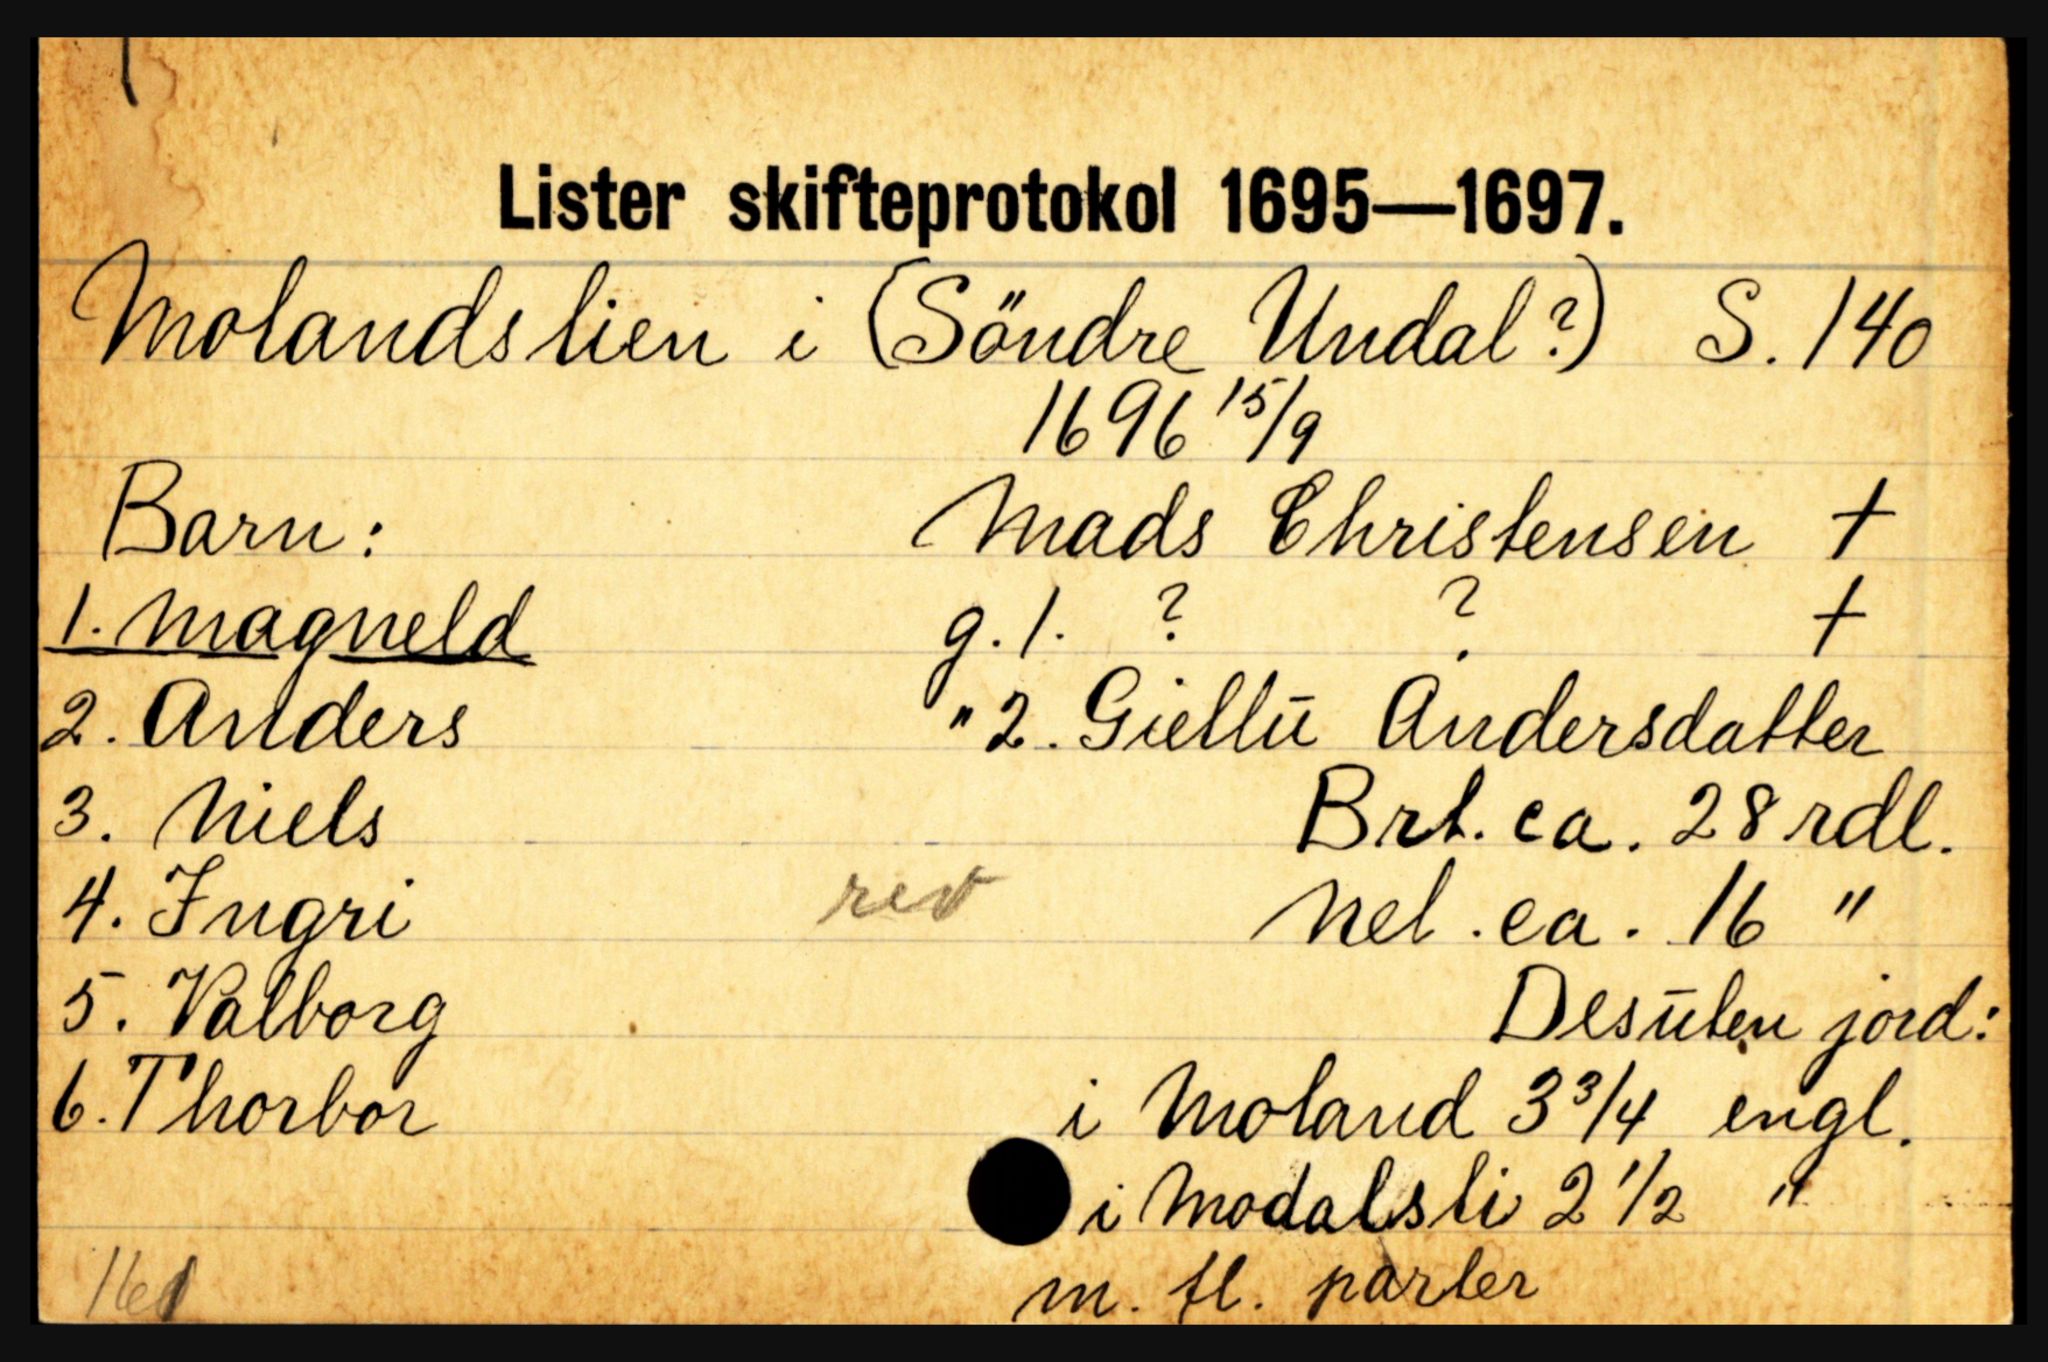 Lister skifteprotokol 1695—1697.
Molandslien i (Söndre Undal?) S. 140
1696 15/9
Barn: Mads Christensen †
1. Magneld g. 1. ? ? †
2. Anders " 2. Giellū Andersdatter
3. Niels Brt. ca. 28 rdl.
4. Ingri rev Nel. ca. 16 "
5. Valborg Desūten jord:
6. Thorbor i Moland 3 3/4 engl.
i Modalsli 2 1/2 "
161 m. fl. parter